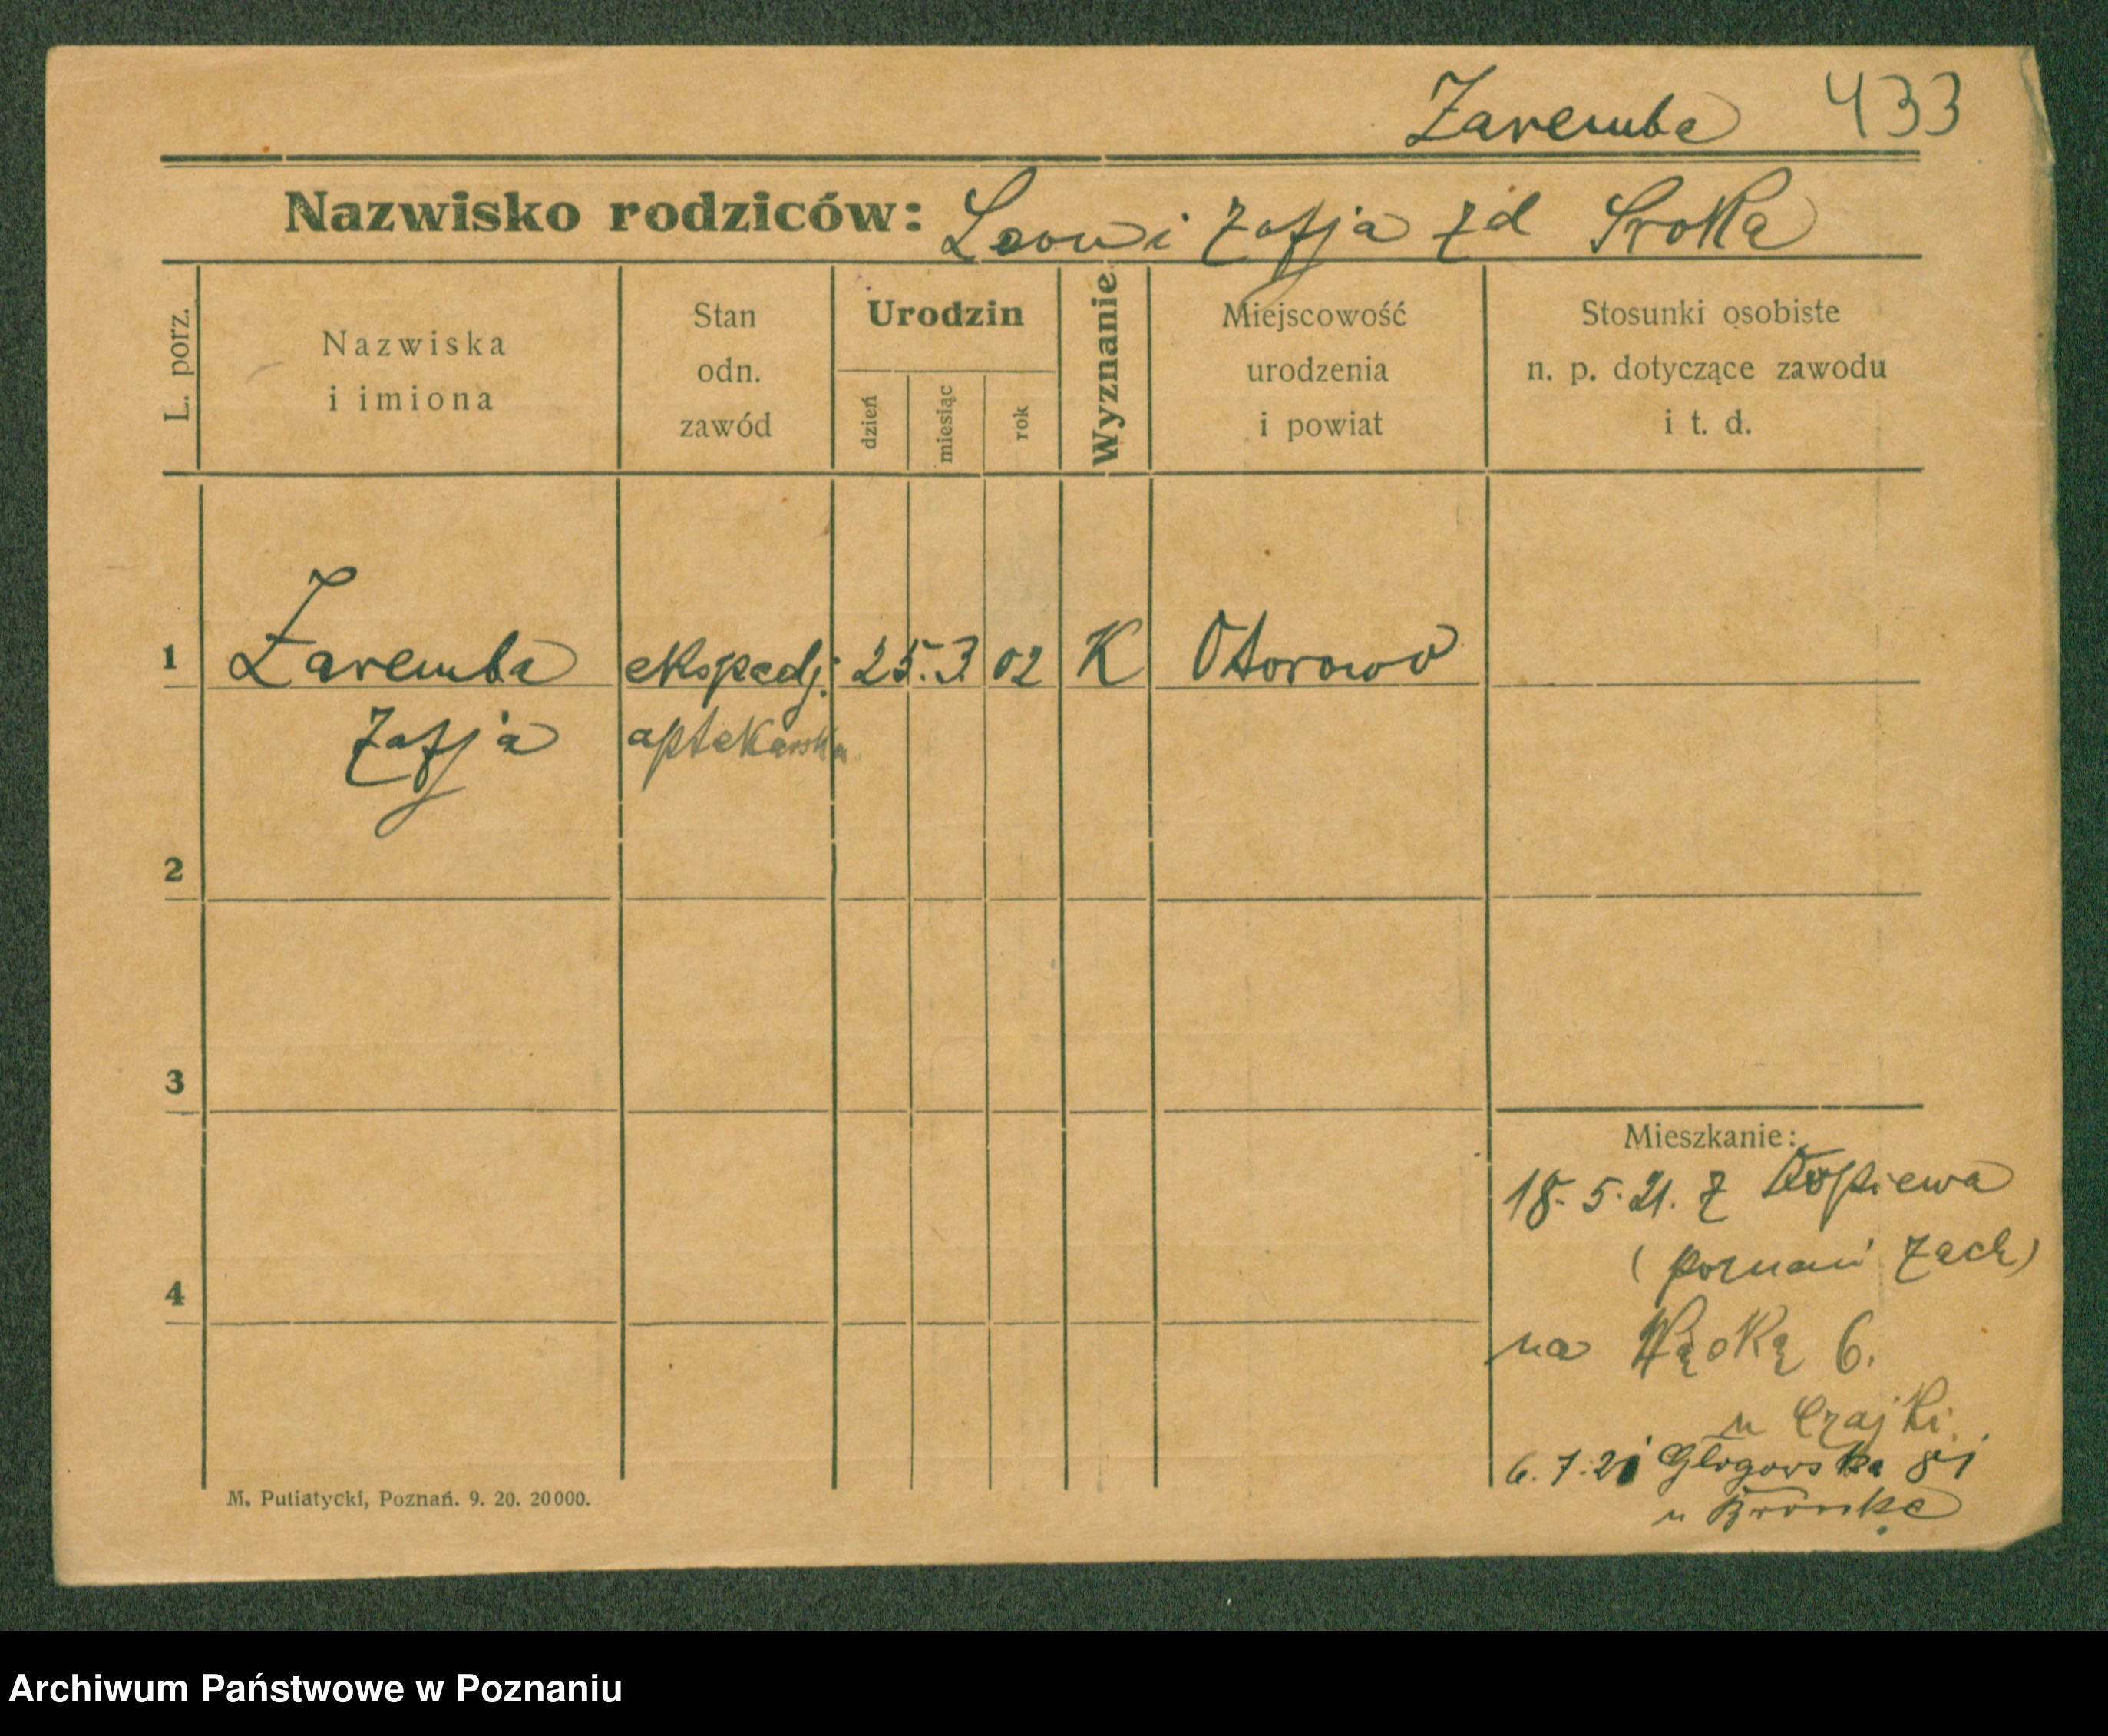 Zaremba 433
Nazwisko rodziców: Leon i Zofja zd Sroka
L. porz.
Nazwiska
i imiona
Stan
odn.
zawód
Urodzin
dzień
miesiąc
rok
Wyznanie
Miejscowość
urodzenia
i powiat
Stosunki osobiste
n. p. dotyczące zawodu
i t. d.
1 Zaremba ekspedj. 25. 3. 02 K Otorowo
Zofja aptekarska
2
3
4
Mieszkanie:
18. 5. 21. z Dopiewa
(poznań zach)
na Wąską 6.
u Czajki.
6. 7. 21 Głogowska 81
u
M. Putiatycki, Poznań. 9. 20. 20000.
Archiwum Państwowe w Poznaniu